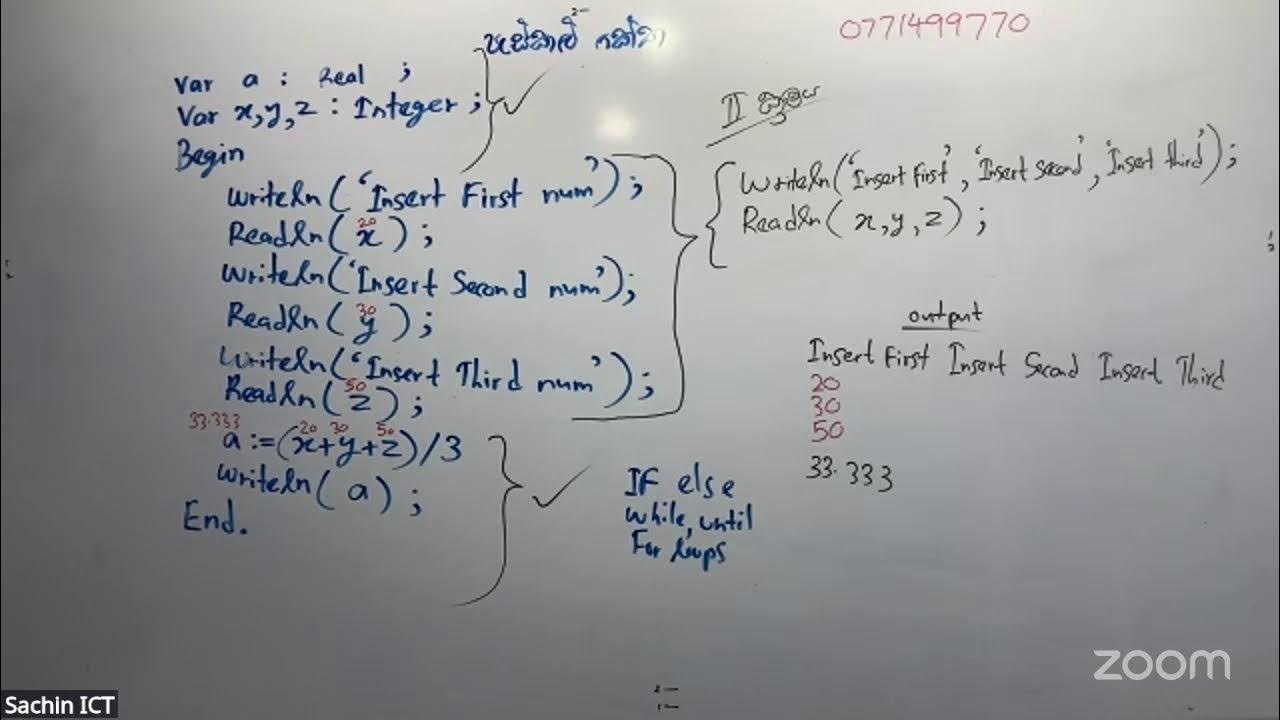 පැස්කාල්
0771499770
var a : Real ;
Var x,y,z : Integer ;
Begin
writeln('Insert First num');
Readln(x);
20
writeln('Insert Second num');
Readln(y);
30
writeln('Insert Third num');
Readln(z);
50
33.333
20 30 50
a:=(x+y+z)/3
writeln(a);
End.
II ක්‍රමය
Writeln('Insert First','Insert Second','Insert third');
Readln(x,y,z);
output
Insert First Insert Second Insert Third
20
30
50
33.333
IF else
while, until
For loops
zoom
Sachin ICT